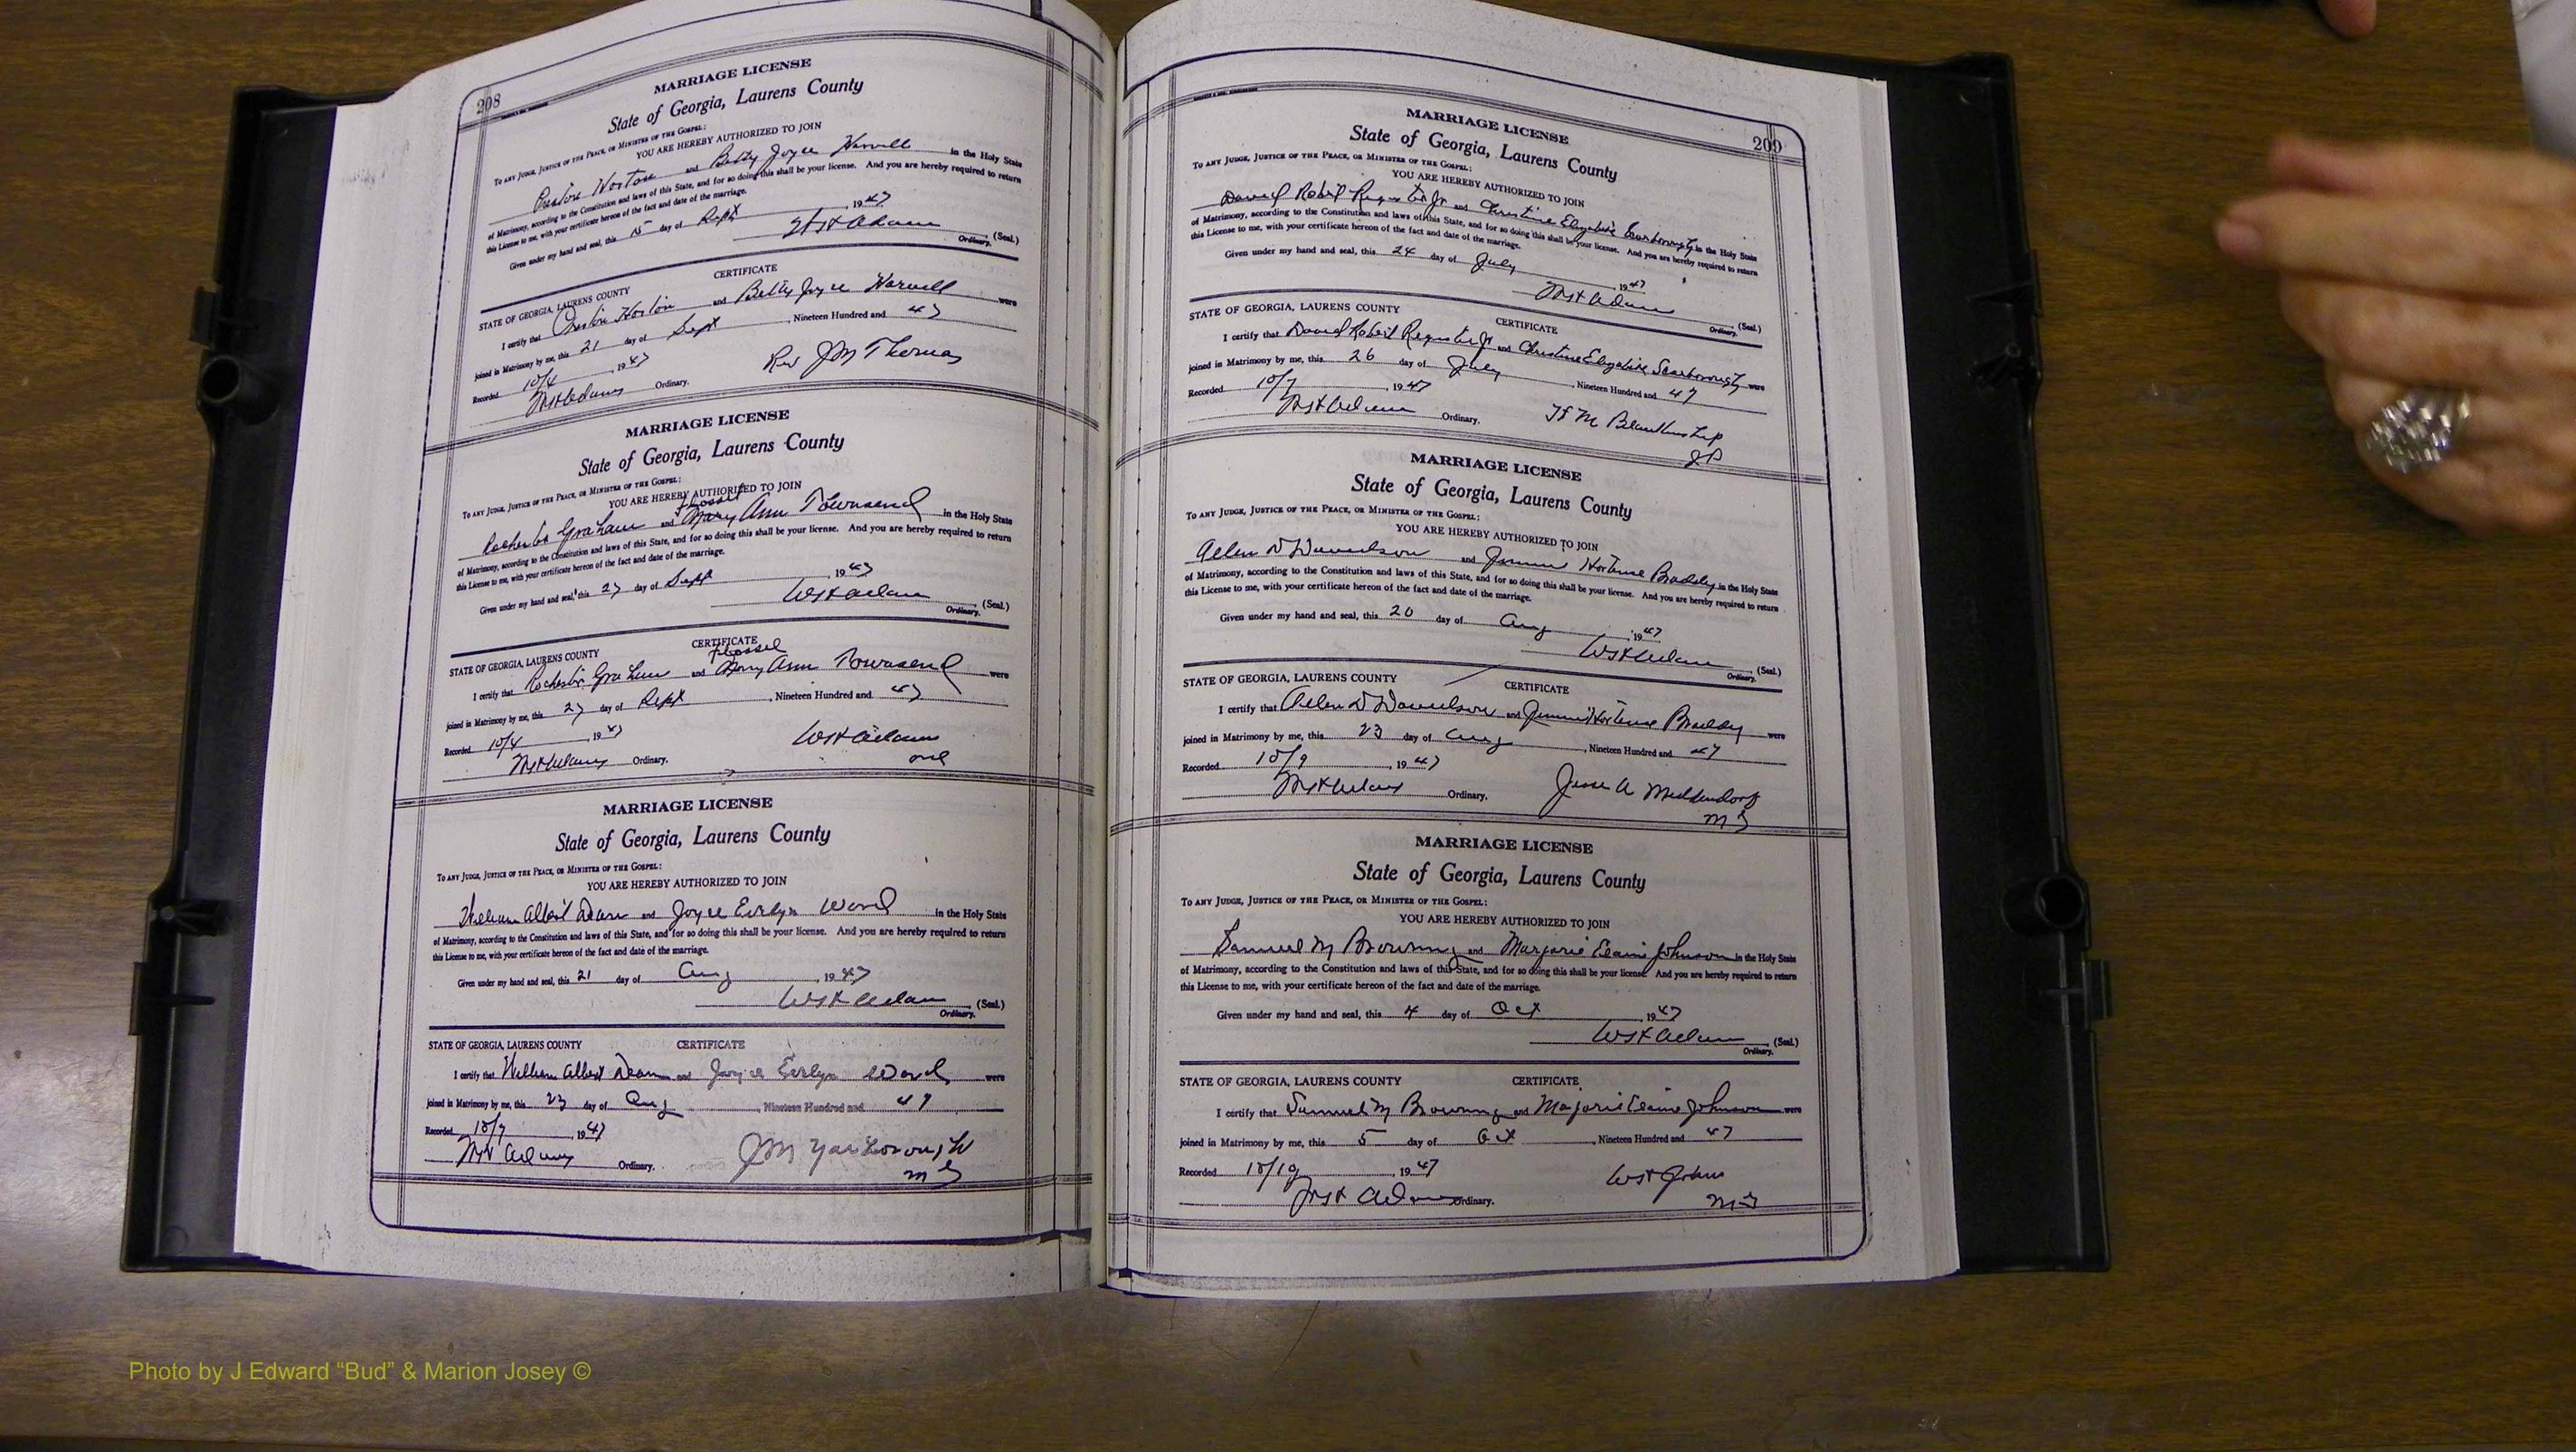 208
MARRIAGE LICENSE
State of Georgia, Laurens County
To any Judge, Justice of the Peace, or Minister of the Gospel:
YOU ARE HEREBY AUTHORIZED TO JOIN
Horton and Betty Joyce Harvell in the Holy State
of Matrimony, according to the Constitution and laws of this State, and for so doing this shall be your license. And you are hereby required to return
this License to me, with your certificate hereon of the fact and date of the marriage.
Given under my hand and seal, this 15 day of Sept 1947
Adams (Seal.)
Ordinary.
CERTIFICATE
STATE OF GEORGIA, LAURENS COUNTY
I certify that Horton and Betty Joyce Harvell were
joined in Matrimony by me, this 21 day of Sept, Nineteen Hundred and 47
Recorded 10/4, 1947
Rev J M Thomas
Adams Ordinary.
MARRIAGE LICENSE
State of Georgia, Laurens County
To any Judge, Justice of the Peace, or Minister of the Gospel:
YOU ARE HEREBY AUTHORIZED TO JOIN
Flossel
Graham and Mary Ann Townsend in the Holy State
of Matrimony, according to the Constitution and laws of this State, and for so doing this shall be your license. And you are hereby required to return
this License to me, with your certificate hereon of the fact and date of the marriage.
Given under my hand and seal, this 27 day of Sept 1947
Adams (Seal.)
Ordinary.
CERTIFICATE
STATE OF GEORGIA, LAURENS COUNTY
Flossel
I certify that Graham and Mary Ann Townsend were
joined in Matrimony by me, this 27 day of Sept, Nineteen Hundred and 47
Recorded 10/4, 1947
Adams
Ord
Adams Ordinary.
MARRIAGE LICENSE
State of Georgia, Laurens County
To any Judge, Justice of the Peace, or Minister of the Gospel:
YOU ARE HEREBY AUTHORIZED TO JOIN
William Albert Dean and Joyce Evelyn Ward in the Holy State
of Matrimony, according to the Constitution and laws of this State, and for so doing this shall be your license. And you are hereby required to return
this License to me, with your certificate hereon of the fact and date of the marriage.
Given under my hand and seal, this 21 day of Aug, 1947
Adams (Seal.)
Ordinary.
STATE OF GEORGIA, LAURENS COUNTY CERTIFICATE
I certify that William Albert Dean and Joyce Evelyn Ward were
joined in Matrimony by me, this 23 day of Aug, Nineteen Hundred and 47
Recorded 10/7, 1947
J M Yarborough
M G
Adams Ordinary.
209
MARRIAGE LICENSE
State of Georgia, Laurens County
To any Judge, Justice of the Peace, or Minister of the Gospel:
YOU ARE HEREBY AUTHORIZED TO JOIN
David Robert Register Jr and Christine Elizabeth Scarborough in the Holy State
of Matrimony, according to the Constitution and laws of this State, and for so doing this shall be your license. And you are hereby required to return
this License to me, with your certificate hereon of the fact and date of the marriage.
Given under my hand and seal, this 24 day of July 1947
Adams (Seal.)
Ordinary.
STATE OF GEORGIA, LAURENS COUNTY CERTIFICATE
I certify that David Robert Register Jr and Christine Elizabeth Scarborough were
joined in Matrimony by me, this 26 day of July, Nineteen Hundred and 47
Recorded 10/7, 1947
M Blankinship
JP
Adams Ordinary.
MARRIAGE LICENSE
State of Georgia, Laurens County
To any Judge, Justice of the Peace, or Minister of the Gospel:
YOU ARE HEREBY AUTHORIZED TO JOIN
Allen D Davidson and Hortense Braddy in the Holy State
of Matrimony, according to the Constitution and laws of this State, and for so doing this shall be your license. And you are hereby required to return
this License to me, with your certificate hereon of the fact and date of the marriage.
Given under my hand and seal, this 20 day of Aug, 1947
Adams (Seal.)
Ordinary.
STATE OF GEORGIA, LAURENS COUNTY CERTIFICATE
I certify that Allen D Davidson and Hortense Braddy were
joined in Matrimony by me, this 23 day of Aug, Nineteen Hundred and 47
Recorded 10/9, 1947
Jesse A Middendorf
M G
Adams Ordinary.
MARRIAGE LICENSE
State of Georgia, Laurens County
To any Judge, Justice of the Peace, or Minister of the Gospel:
YOU ARE HEREBY AUTHORIZED TO JOIN
Samuel M Browning and Marjorie Elaine Johnson in the Holy State
of Matrimony, according to the Constitution and laws of this State, and for so doing this shall be your license. And you are hereby required to return
this License to me, with your certificate hereon of the fact and date of the marriage.
Given under my hand and seal, this 4 day of Oct, 1947
Adams (Seal.)
Ordinary.
STATE OF GEORGIA, LAURENS COUNTY CERTIFICATE
I certify that Samuel M Browning and Marjorie Elaine Johnson were
joined in Matrimony by me, this 5 day of Oct, Nineteen Hundred and 47
Recorded 1947
M G
Adams Ordinary.
Photo by J Edward “Bud” & Marion Josey ©